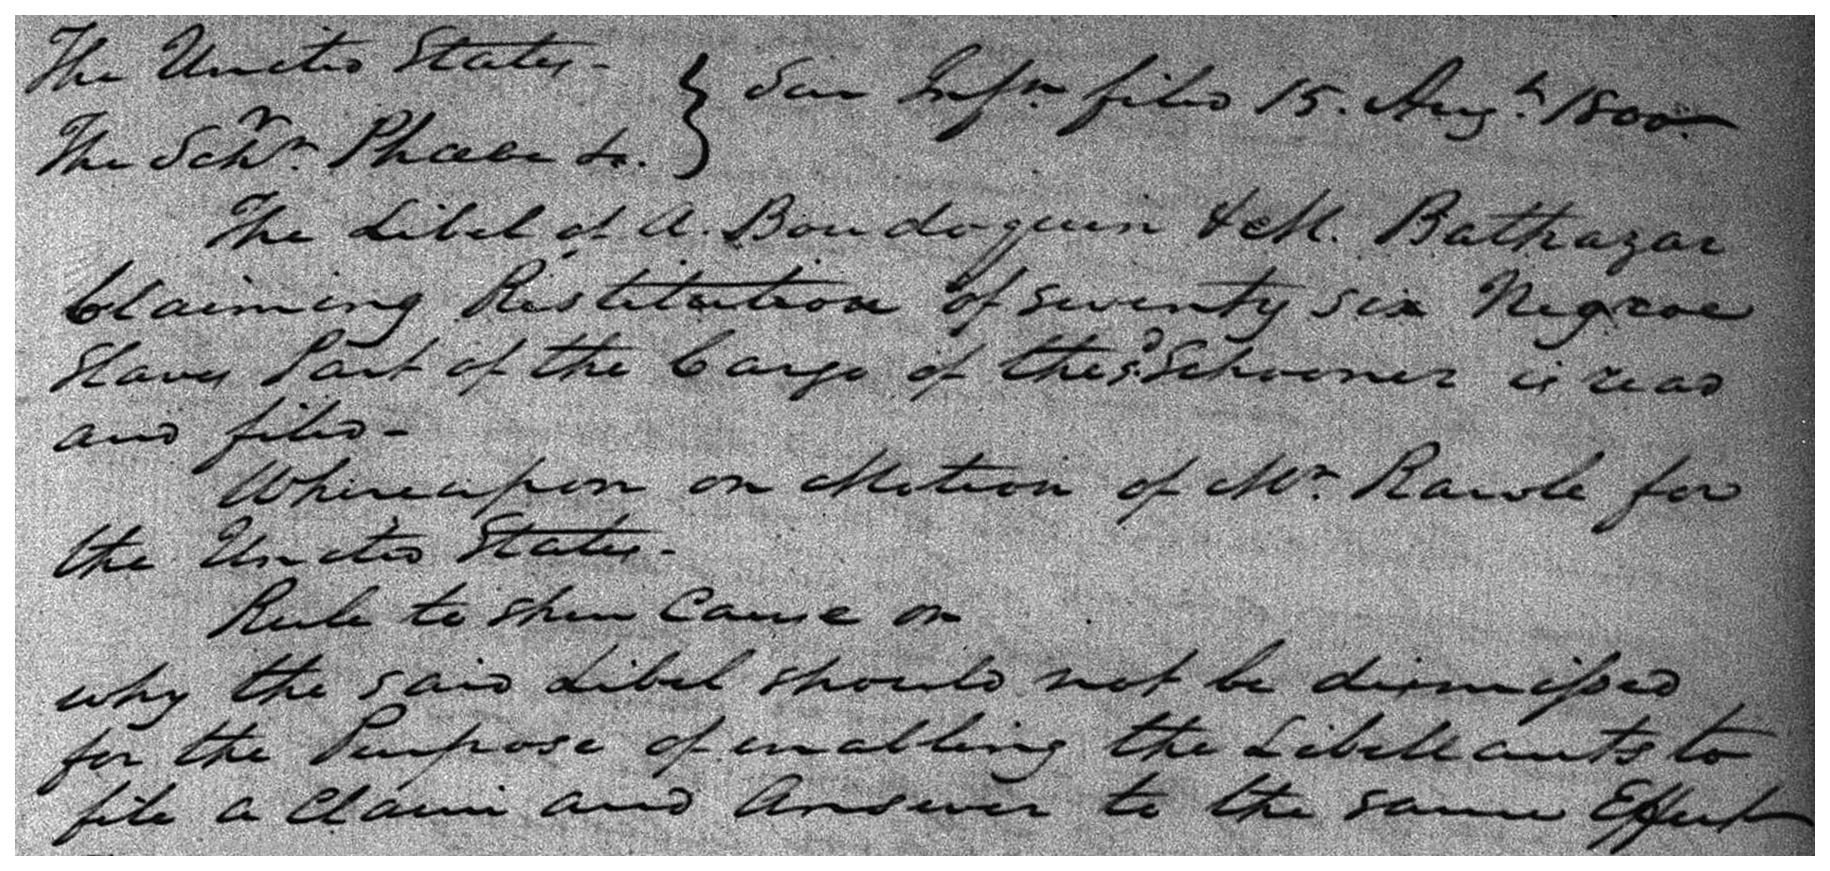 The United States - } Sur Infn filed 15. Augt. 1800.
The Schr. Phoebe &c.
The Libel of A. Boudoquin & M. Bathazar
Claiming Restitution of seventy six Negroe
Slaves Part of the Cargo of the sd. Schooner is read
and filed -
Whereupon on Motion of Mr. Rawle for
the United States -
Rule to shew Cause on
why the said Libel should not be dismissed
for the Purpose of enabling the Libellants to
file a Claim and Answer to the same Effect